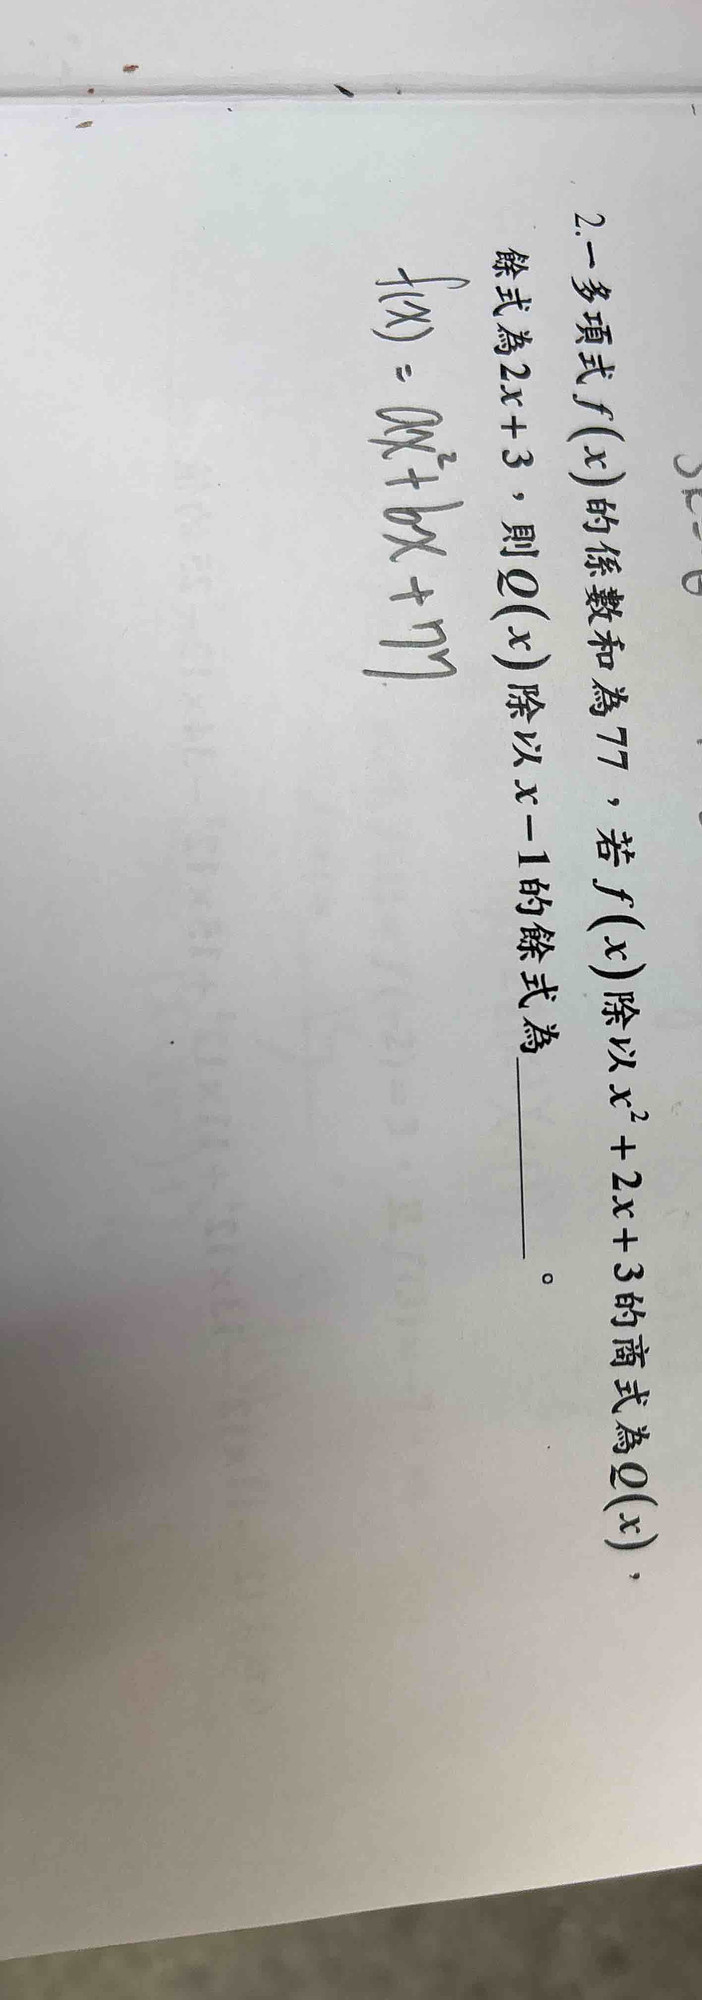 2.一多項式f(x)的係數和為77，若f(x)除以x²+2x+3的商式為Q(x)，
餘式為2x+3，則Q(x)除以x-1的餘式為______。
f(x) = ax²+bx+77